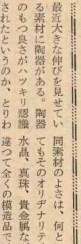 最近大きな伸びを見せてい
る素材に陶器がある。陶器
のもつ良さがハッキリ認識
されたというのか、とりわ
同素材のよさは、何と
てもそのオリヂナリテ
水晶、真珠、貴金属な
違つて全くの模造品で